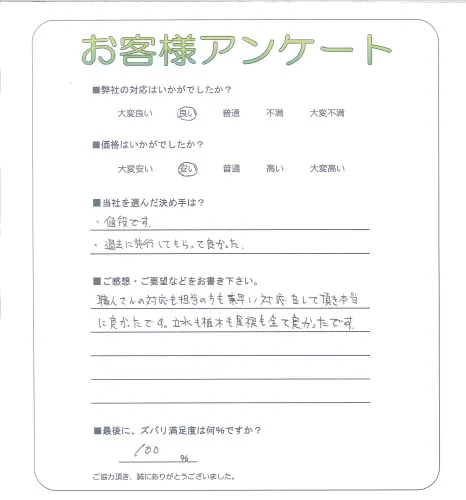 お客様アンケート
■弊社の対応はいかがでしたか？
大変良い 良い 普通 不満 大変不満
■価格はいかがでしたか？
大変安い 安い 普通 高い 大変高い
■当社を選んだ決め手は？
・値段です。
・過去に施行してもらって良かった。
■ご感想・ご要望などをお書き下さい。
職人さんの対応も担当の方も素早い対応をして頂き本当
に良かったです。立水も植木も屋根も全て良かったです。
■最後に、ズバリ満足度は何％ですか？
100 ％
ご協力頂き、誠にありがとうございました。